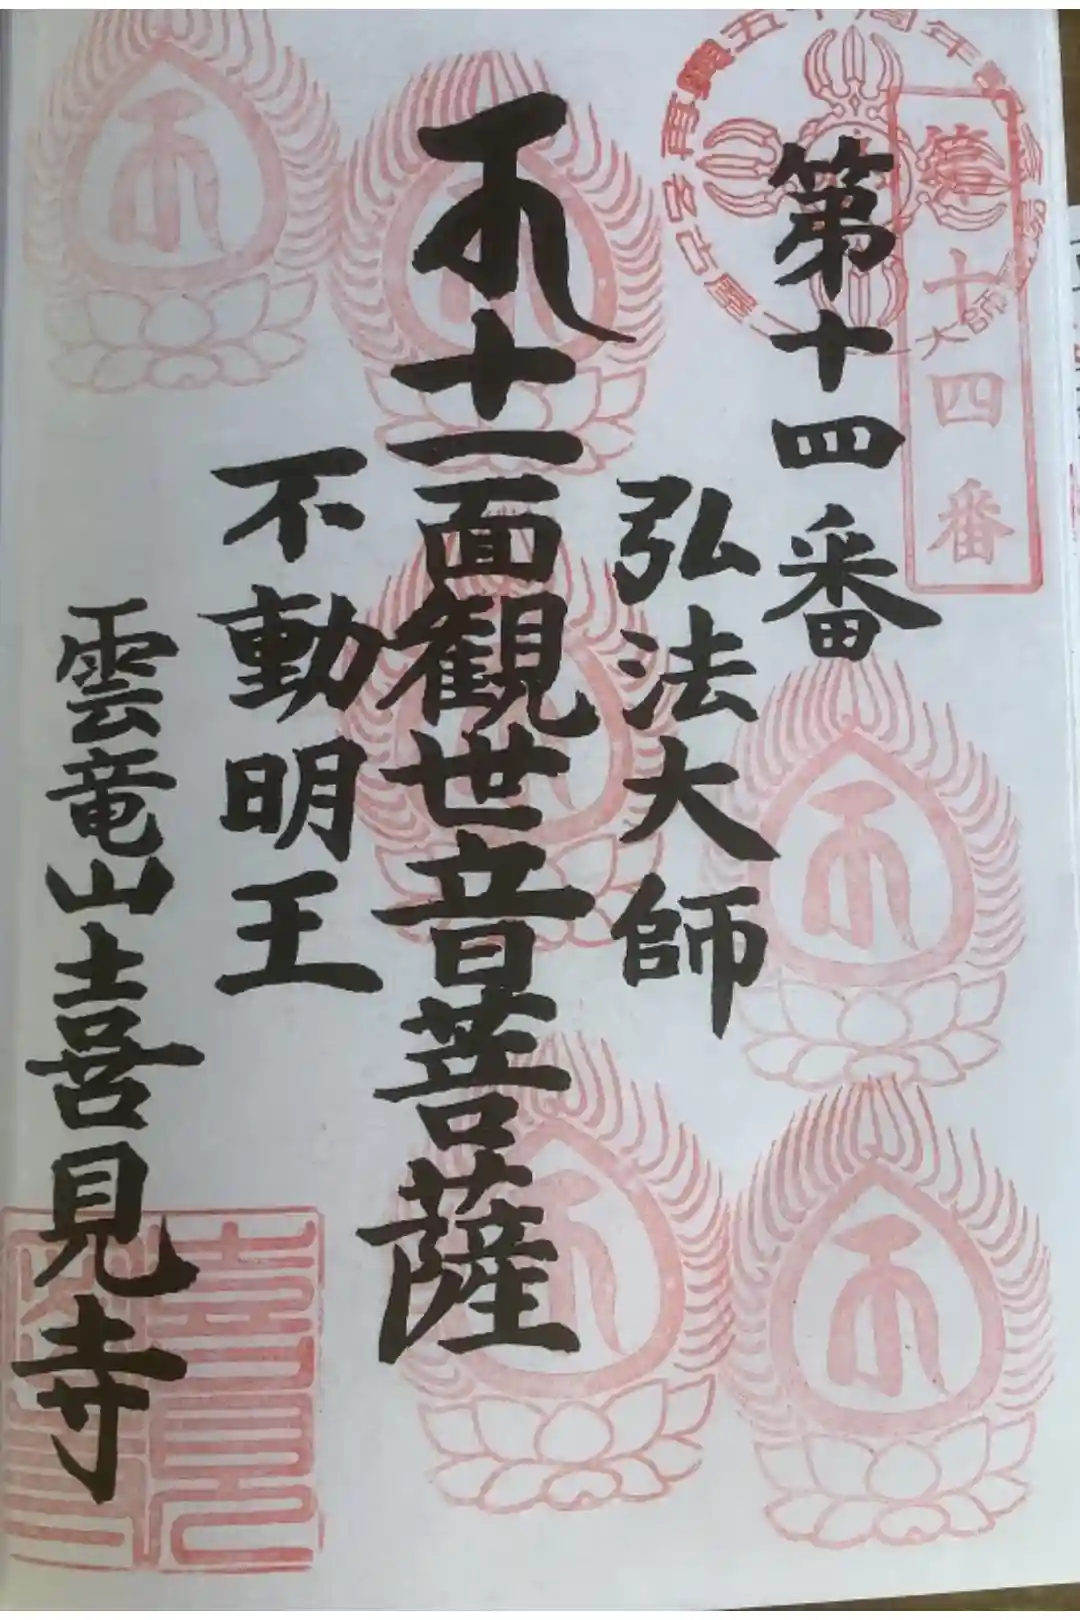 第十四番
再興五十周年
名古屋
大師
第十四番
弘法大師
十一面観世音菩薩
不動明王
雲竜山喜見寺
喜見